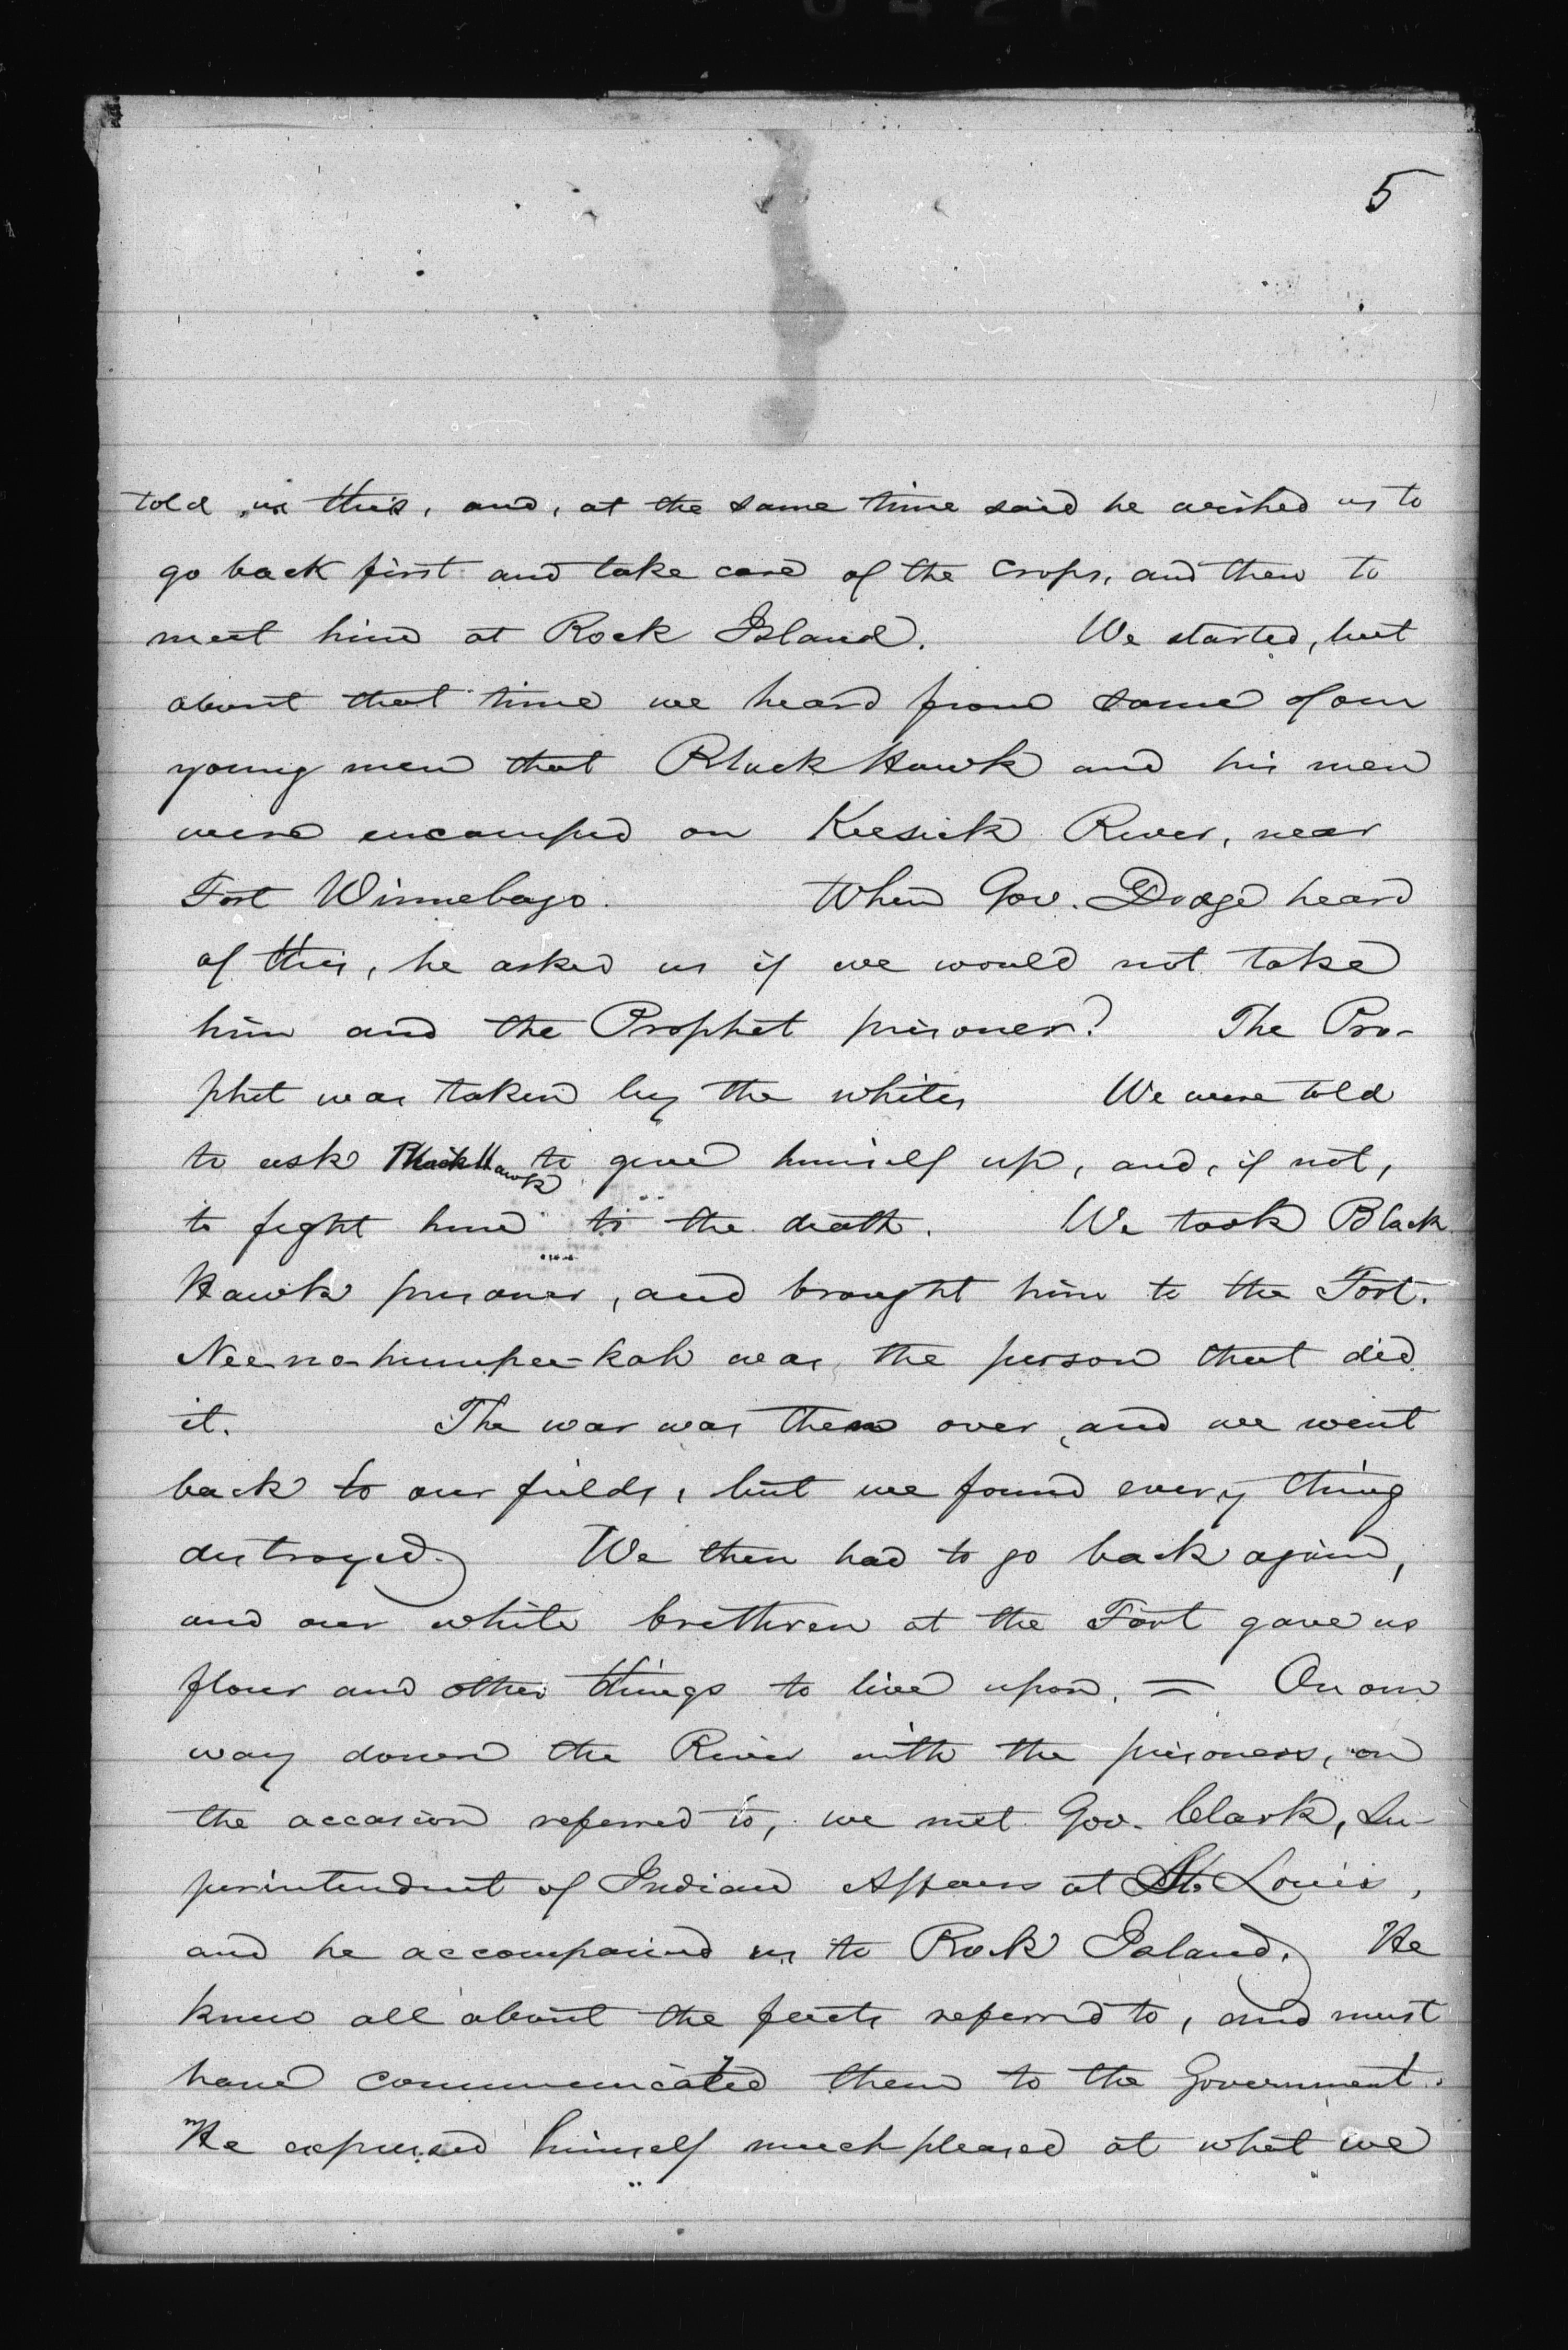 5
told us this, and, at the same time said he wished us to
go back first and take care of the crops, and then to
meet him at Rock Island. We started, but
about that time we heard from some of our
young men that Black Hawk and his men
were encamped on Keesick River, near
Fort Winnebago. When Gov. Dodge heard
of this, he asked us if we would not take
him and the Prophet prisoner? The Pro-
phet was taken by the whites We were told
to ask Black Hawk to give himself up, and, if not,
to fight him to the death. We took Black
Hawk prisoner, and brought him to the Fort.
Nee-no-humpee-kah was the person that did
it. The war was then over, and we went
back to our fields, but we found every thing
destroyed. We then had to go back again,
and our white brethren at the Fort gave us
flour and other things to live upon. = On our
way down the River with the prisoners, on
the occasion referred to, we met Gov. Clark, Su-
perintendent of Indian Affairs at St. Louis,
and he accompanied us to Rock Island. He
knew all about the facts referred to, and must
have communicated them to the Government.
He expressed himself much pleased at what we